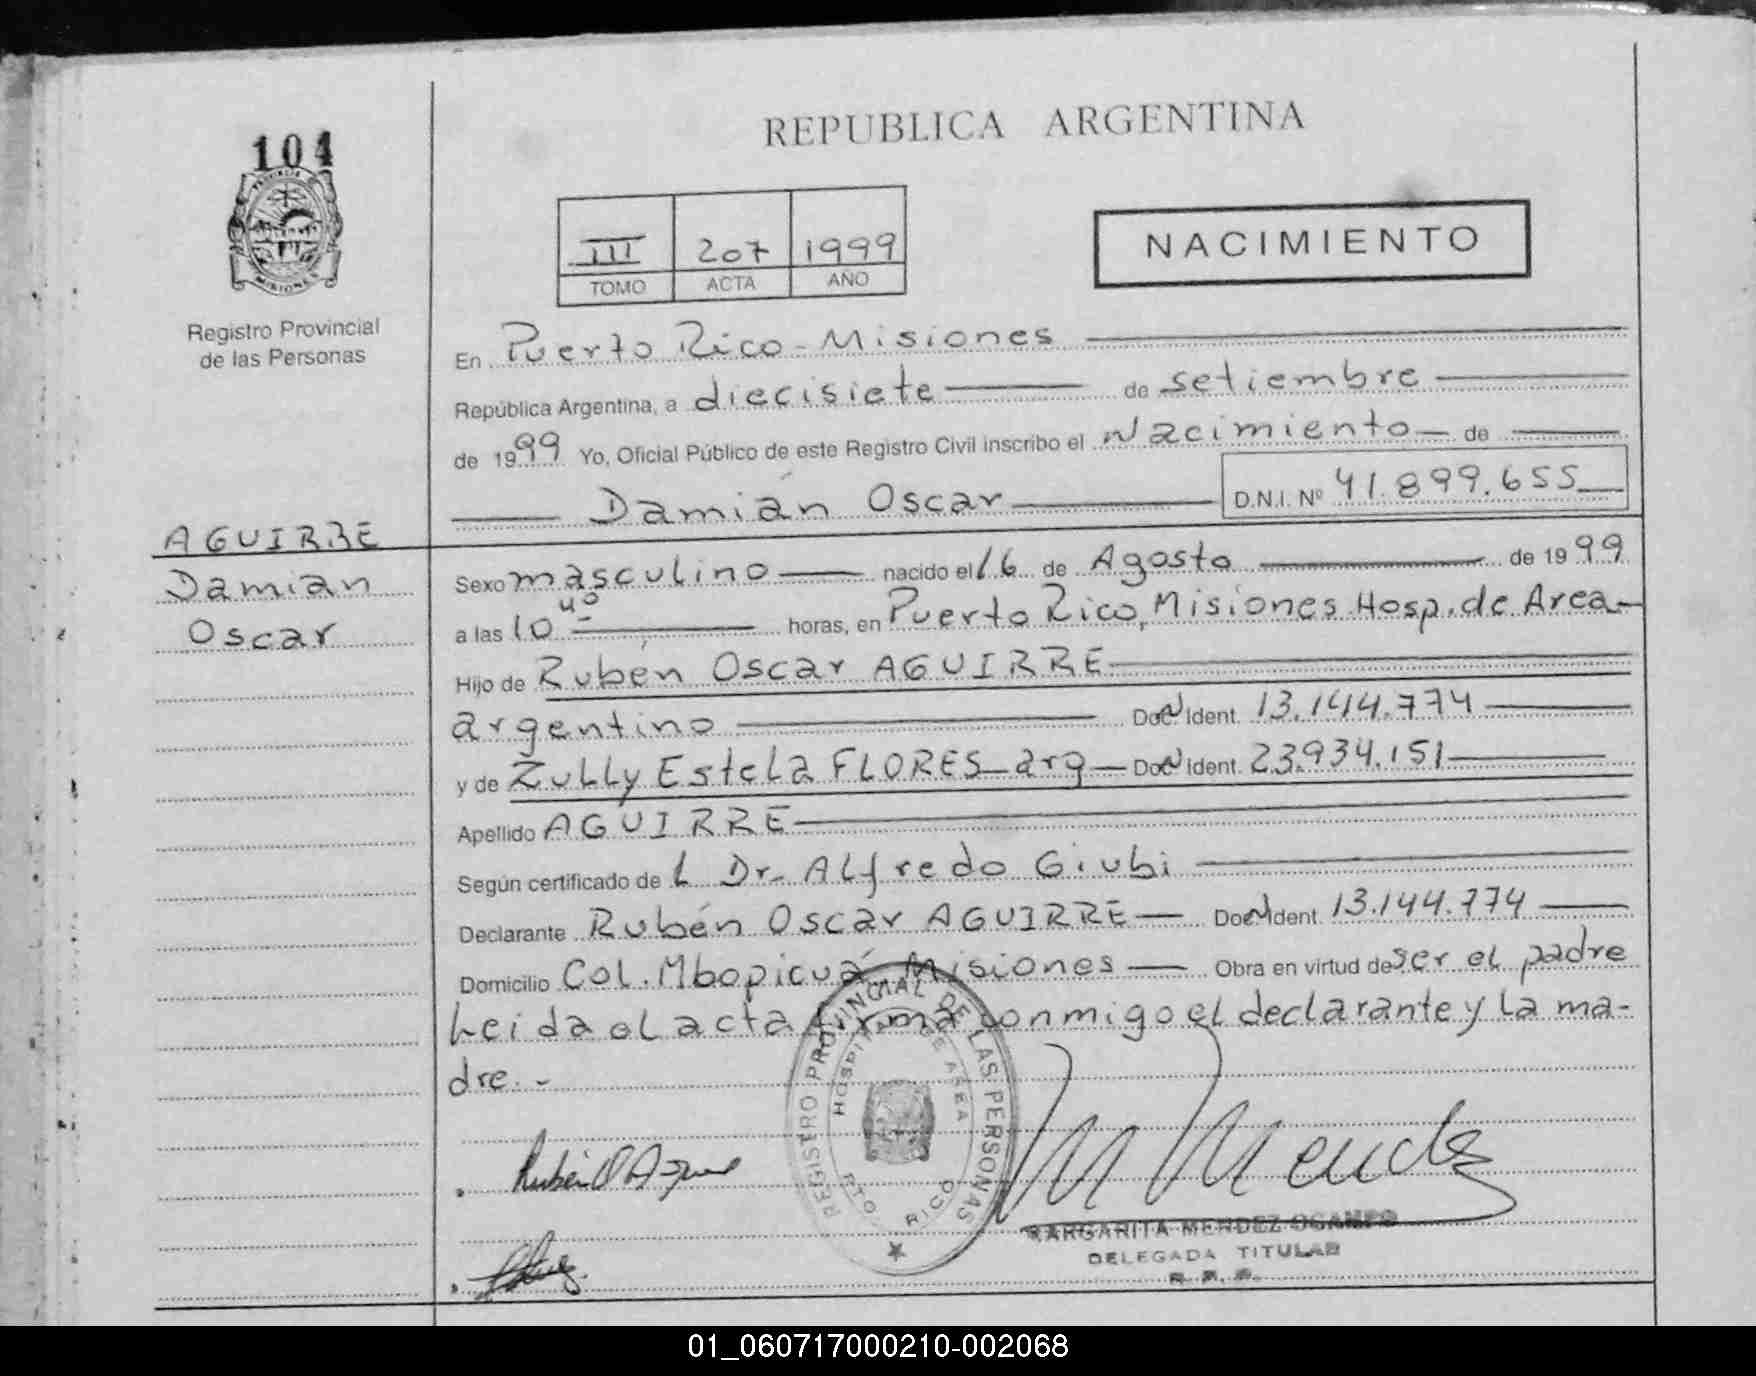 REPUBLICA ARGENTINA
104
PROVINCIA
MISIONES
Registro Provincial
de las Personas
III 207 1999
TOMO ACTA AÑO
NACIMIENTO
En Puerto Rico - Misiones
República Argentina, a diecisiete de setiembre
de 1999 Yo, Oficial Público de este Registro Civil inscribo el Nacimiento de
Damián Oscar D.N.I. Nº 41.899.655
AGUIRRE
Damián
Oscar
Sexo masculino nacido el 16 de Agosto de 1999
a las 10 40 horas, en Puerto Rico, Misiones Hosp. de Area
Hijo de Rubén Oscar AGUIRRE
argentino Doc N Ident. 13.144.774
y de Zully Estela FLORES arg Doc N Ident. 23.934.151
Apellido AGUIRRE
Según certificado de l Dr. Alfredo Giubi
Declarante Rubén Oscar AGUIRRE Doc N Ident. 13.144.774
Domicilio Col. Mbopicuá Misiones Obra en virtud de ser el padre
Leida el acta firma conmigo el declarante y la ma-
dre.-
REGISTRO PROVINCIAL DE LAS PERSONAS
HOSPITAL DE AREA
PTO. RICO
Rubén O Aguirre
M Mendez
MARGARITA MENDEZ OCAMPO
DELEGADA TITULAR
01_060717000210-002068